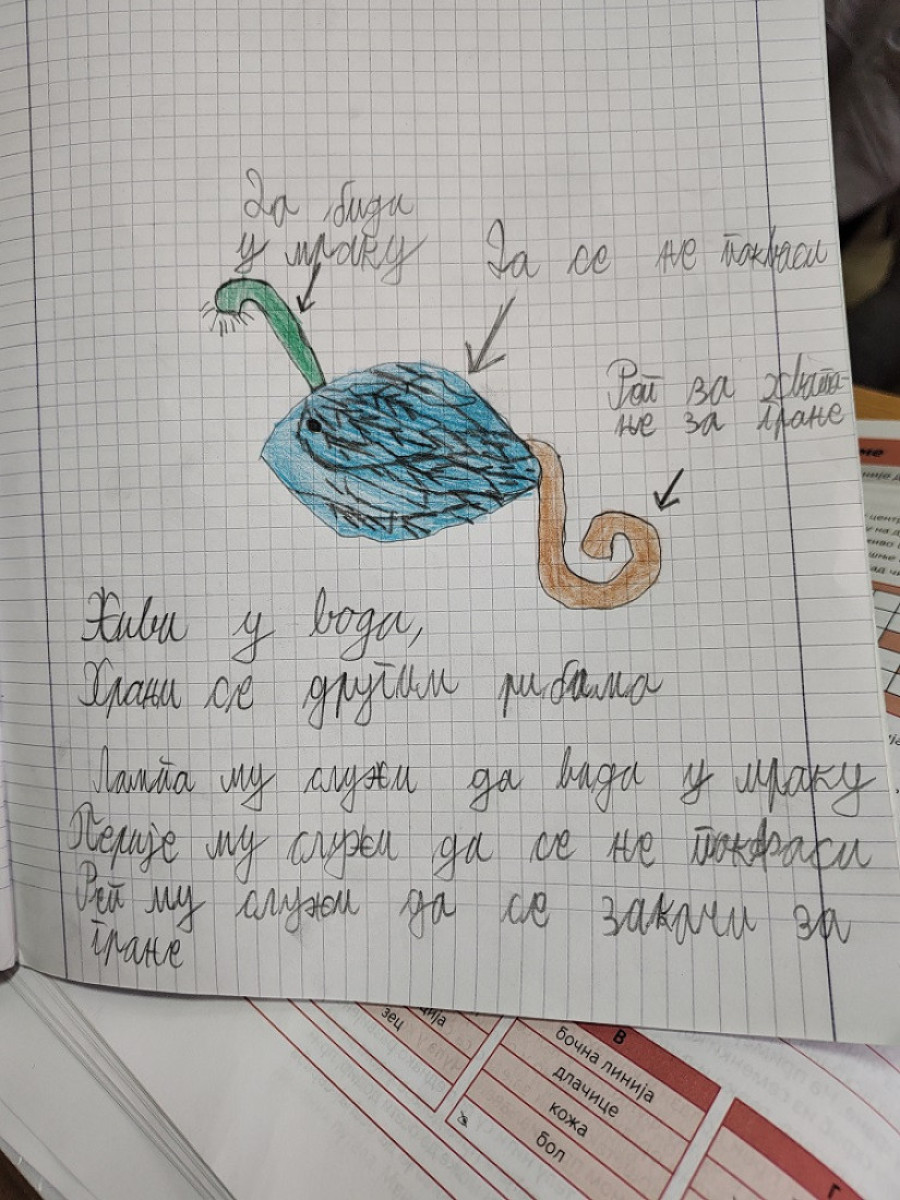 За види
у мраку
За се не покваси
Реп за хвата-
ње за гране
Живи у води,
Храни се другим рибама
Лампа му служи да види у мраку
Перије му служи да се не покваси
Реп му служи да се закачи за
гране
зец
В
бочна линија
длачице
кожа
бол
Г